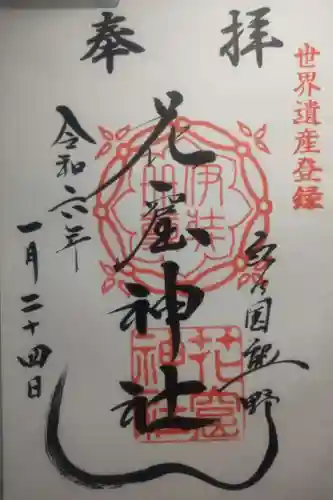 奉拝
世界遺産登録
紀の国熊野
花窟神社
令和六年
一月二十四日
花窟神社